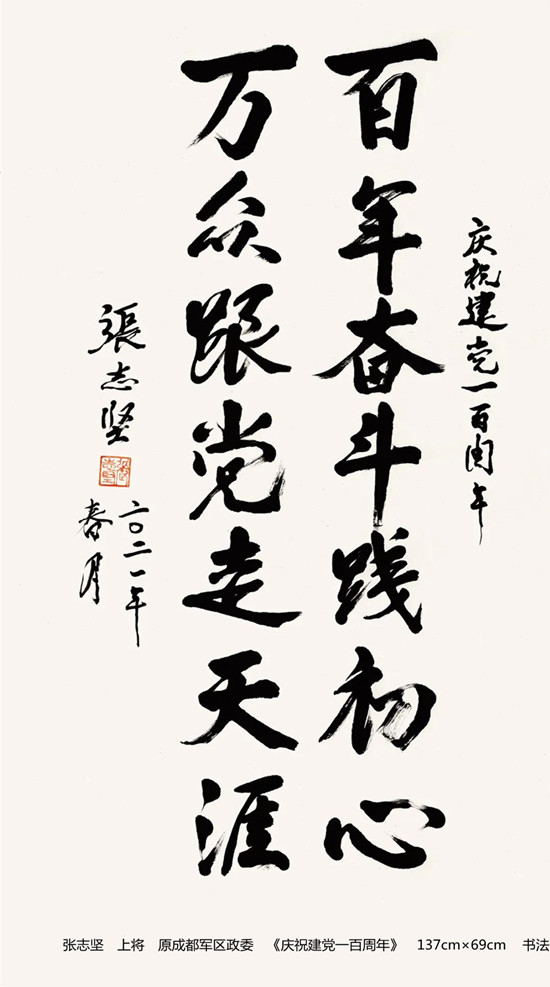 庆祝建党一百周年
百年奋斗践初心
万众跟党走天涯
張志坚
二〇二一年
春月
张志坚 上将 原成都军区政委 《庆祝建党一百周年》 137cm×69cm 书法